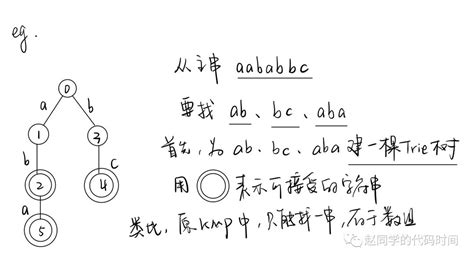 eg.
从主串 aabab​bc
要找 ab、bc、aba
首先, 为 ab、bc、aba 建一棵Trie树
用 表示可接受的字符串
类比, 原kmp中, 只能找一串, 存于数组
0
a
b
1
3
b
c
2
4
a
5
赵同学的代码时间